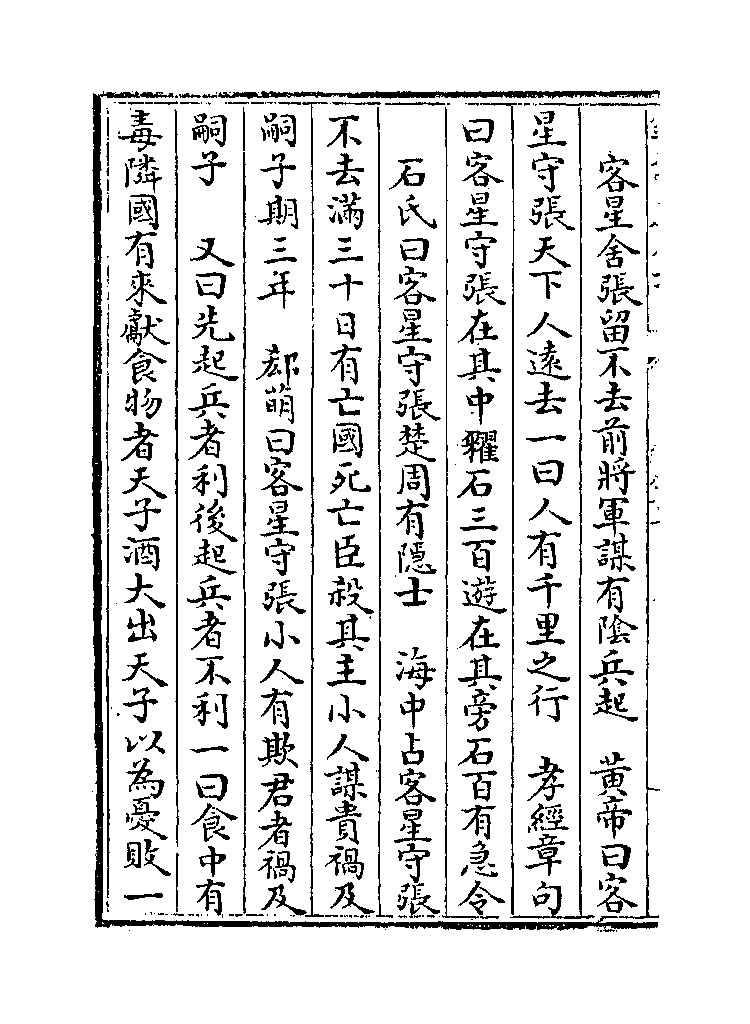 客星舍張留不去前將軍謀有陰兵起　黄帝曰客
星守張天下人遠去一曰人有千里之行　孝經章句
曰客星守張在其中糴石三百遊在其旁石百有急令
石氏曰客星守張楚周有隱士　海中占客星守張
不去滿三十日有亡國死亡臣殺其主小人謀貴禍及
嗣子期三年　郄萌曰客星守張小人有欺君者禍及
嗣子　又曰先起兵者利後起兵者不利一曰食中有
毒隣國有來獻食物者天子酒大出天子以為憂敗一